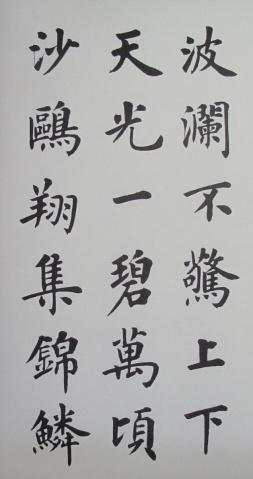 波瀾不驚上下
天光一碧萬頃
沙鷗翔集錦鱗